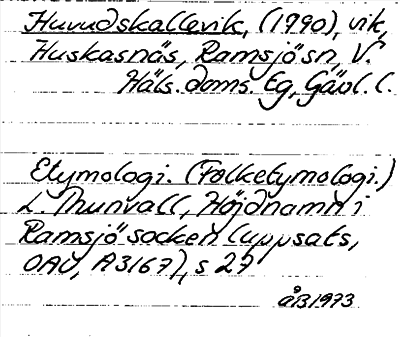 Huvudskallevik, (1790), vik,
Huskasnäs, Ramsjö sn, V.
Häls. doms. Eg, Gävl. l.
Etymologi. (Folketymologi.)
L. Munvall, Höjdnamn i
Ramsjö socken (uppsats,
OAU, A3167), s 27
ÅB1973